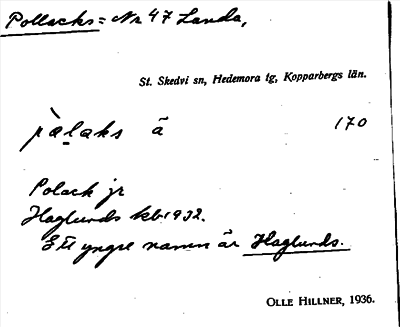 Pollacks = Nr 47 Landa,
St. Skedvi sn, Hedemora tg, Kopparbergs län.
pàlaks ä 170
Polack jr
Haglunds kb 1932.
Ett yngre namn är Haglunds.
OLLE HILLNER, 1936.